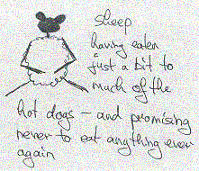 sheep
having eaten
just a bit to
much of the
hot dogs – and promising
never to eat anything ever
again